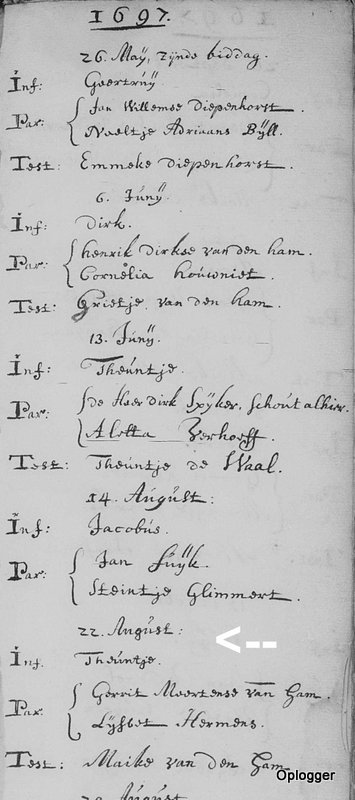 1697.
26. Maÿ, zÿnde biddag.
Inf: Geertruÿ
Par: Jan Willemse Diepenhorst.
Neeltje Adriaans Bÿll.
Test: Emmeke Diepenhorst.
6. Junÿ.
Inf: Dirk.
Par: Henrik Dirkse van den Ham.
Cornelia Houwniet.
Test: Grietje van den Ham.
13. Junÿ.
Inf: Theuntje.
Par: De Heer Dirk Spÿker, Schout alhier.
Aletta Verhoeff.
Test: Theuntje de Waal.
14. August:
Inf: Jacobus.
Par: Jan
Steintje Glimmert.
22. August: <--
Inf. Theuntje.
Par: Gerrit Meertense van Ham.
Lÿsbet Hermens.
Test: Maike van den Ham
August
Oplogger